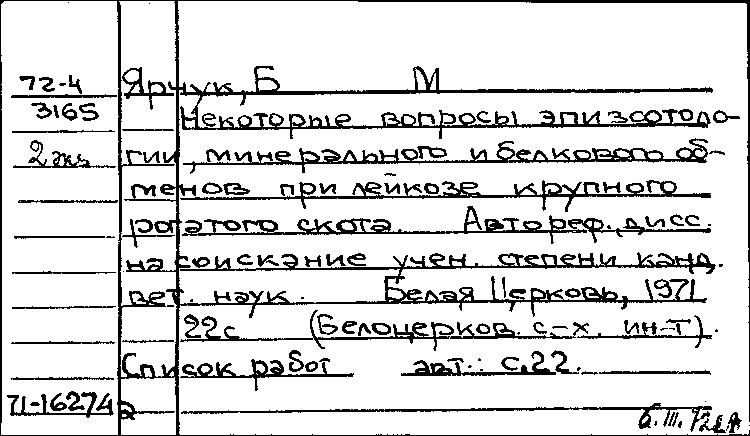 72-4 Ярчук, Б М
3165 Некоторые вопросы эпизоотоло-
2 экз гии, минерального и белкового об-
менов при лейкозе крупного
рогатого скота. Автореф. дисс.
на соискание учен. степени канд.
вет. наук. Белая Церковь, 1971
22с (Белоцерков. с-х. ин-т).
Список работ авт.: с.22.
71-16274а
6.III.72